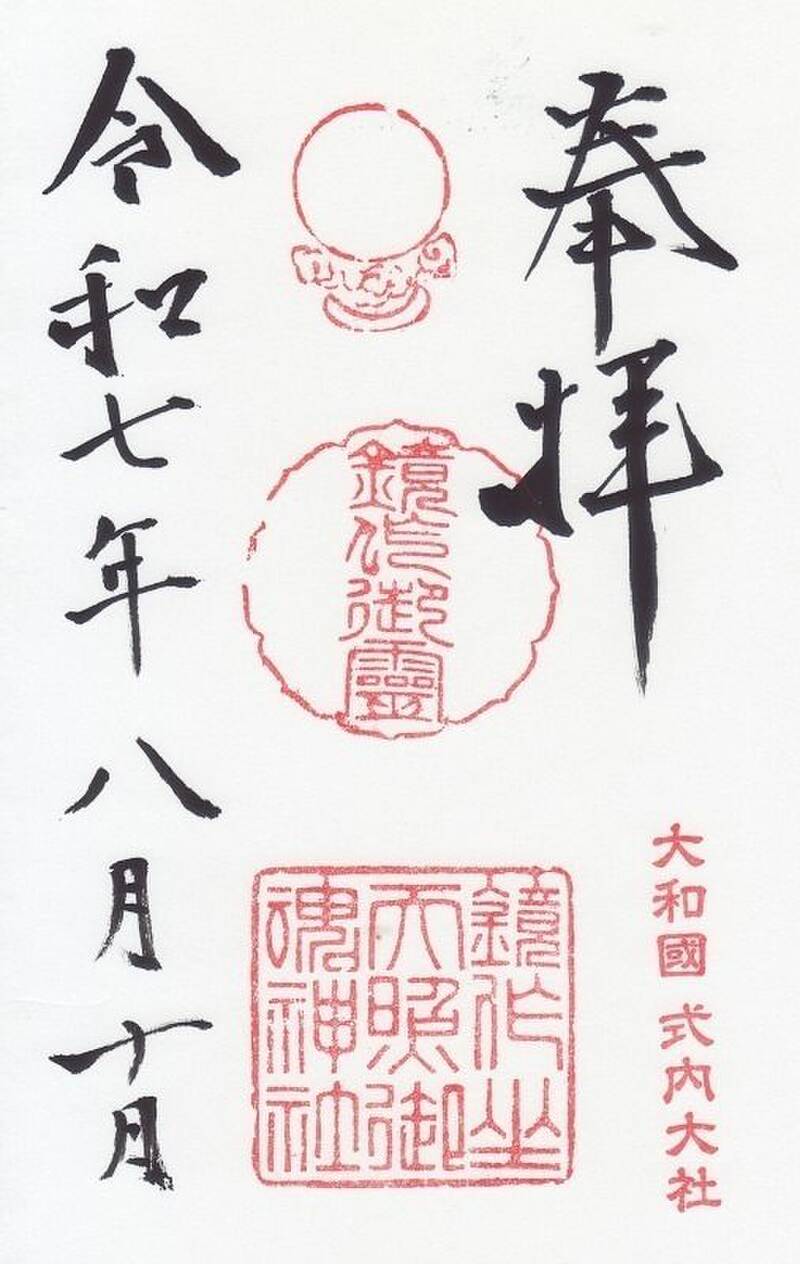 奉拝
大和國 式内大社
鏡作御靈
鏡作坐
天照御
魂神社
令和七年 八月十月